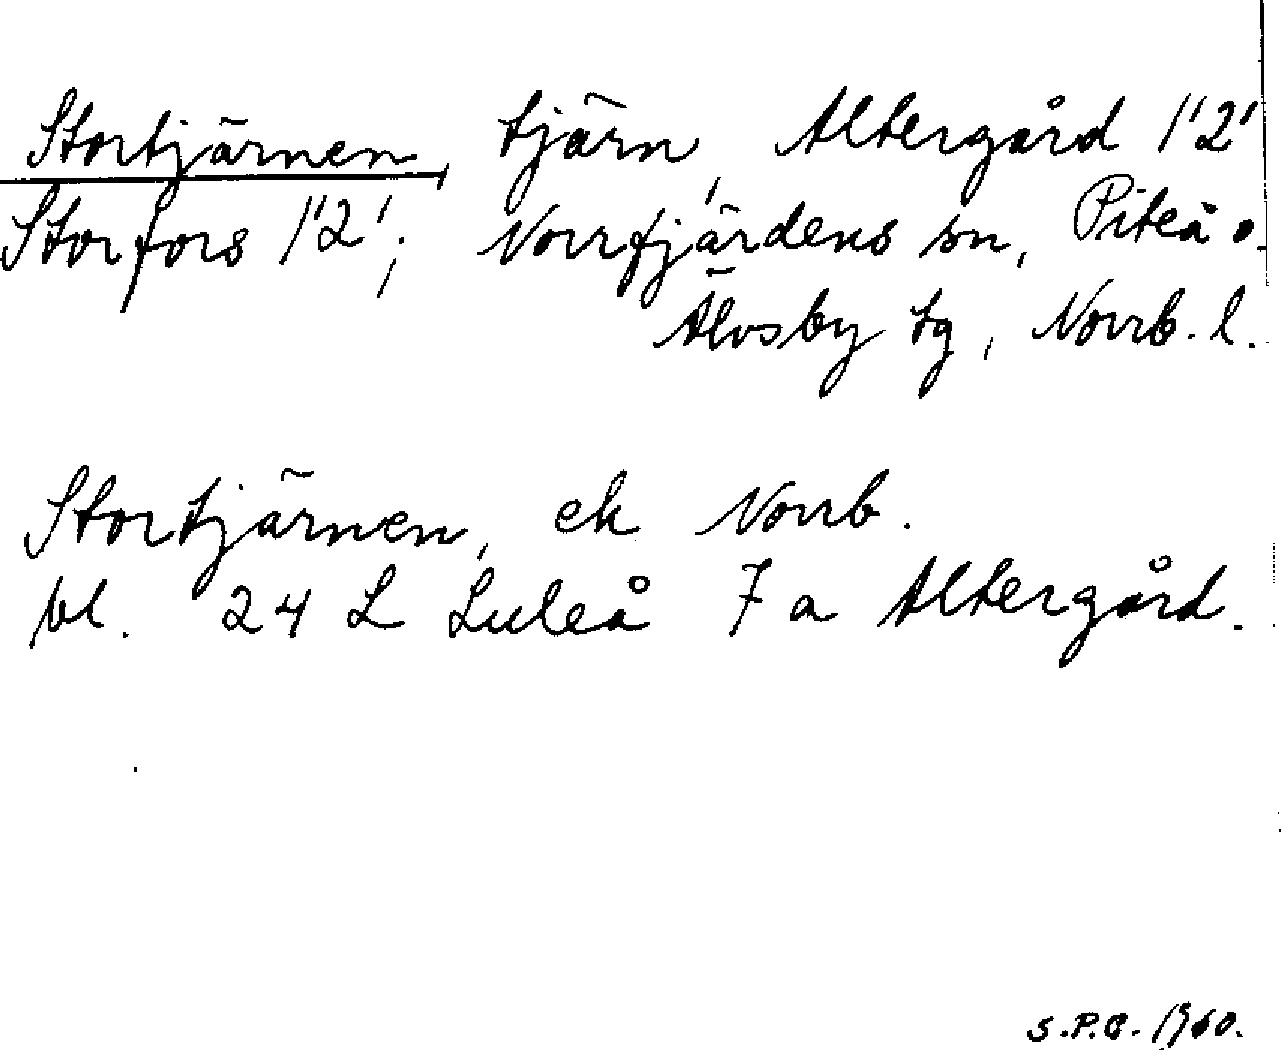 Stortjärnen, tjärn, Altergård 1'2'
Storfors 1'2'; Norrfjärdens sn, Piteå o.
Älvsby tg, Norrb. l.
Stortjärnen, ek Norrb.
bl. 24 L Luleå 7 a Altergård.
S.P.C. 1960.